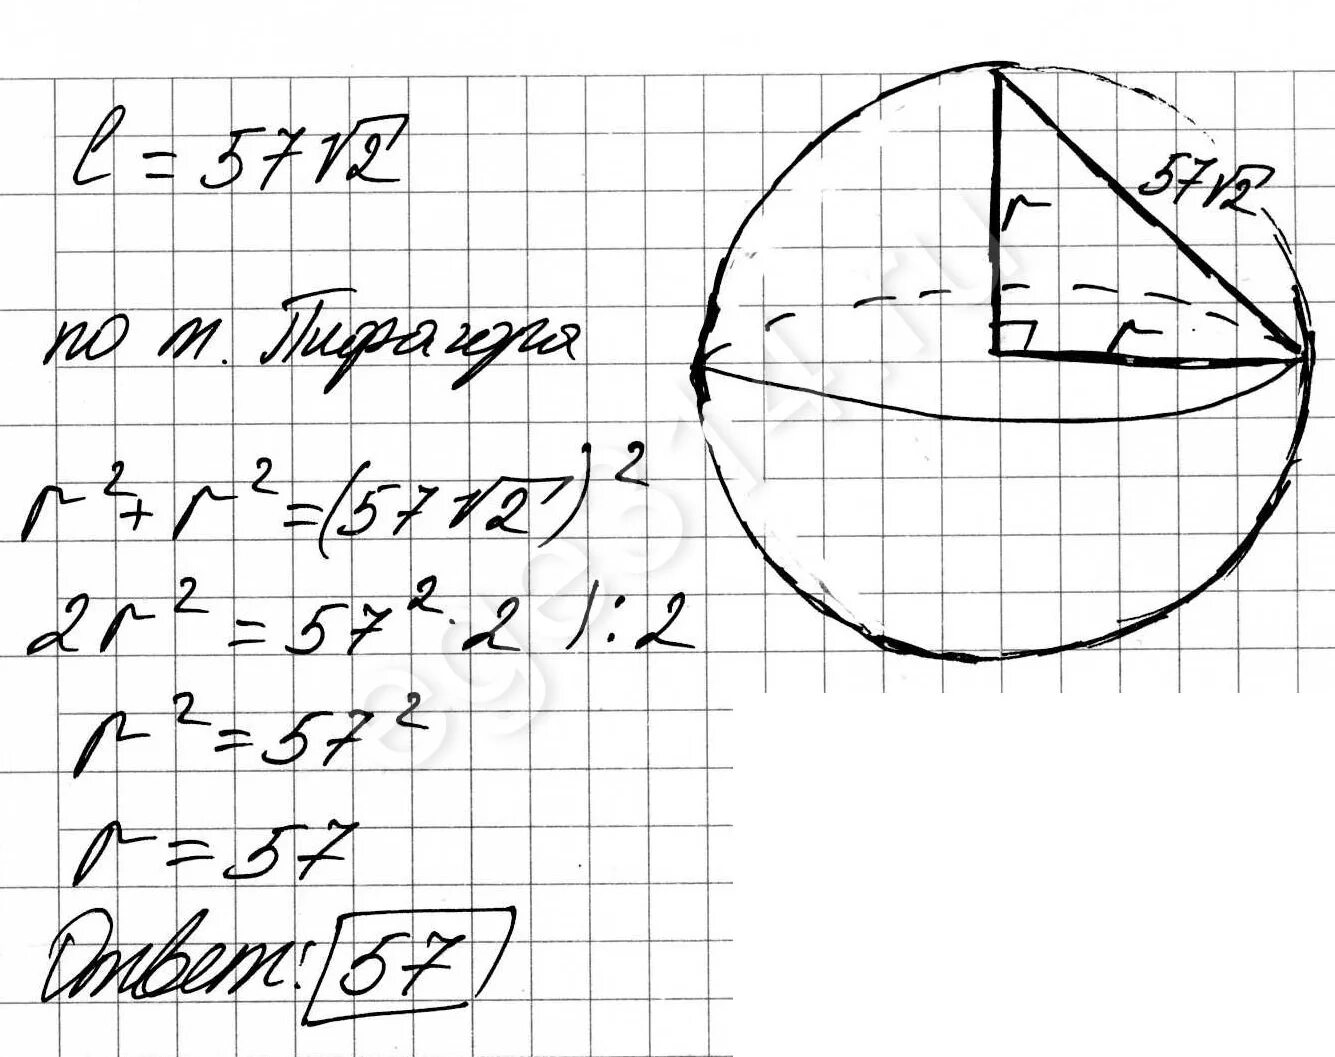 l = 57√2
по т. Пифагора
r² + r² = (57√2)²
2r² = 57² · 2 | : 2
r² = 57²
r = 57
Ответ: 57
57√2
r
r
ege314.ru